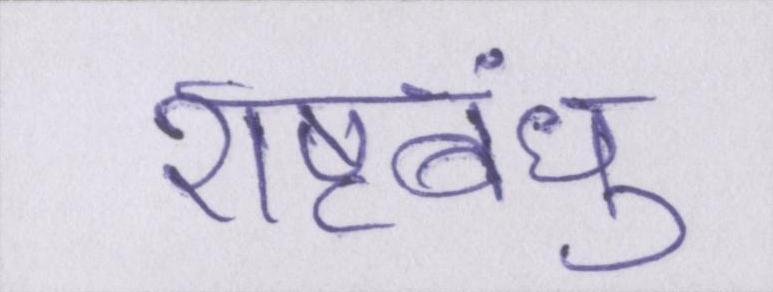 राष्ट्रबंधु